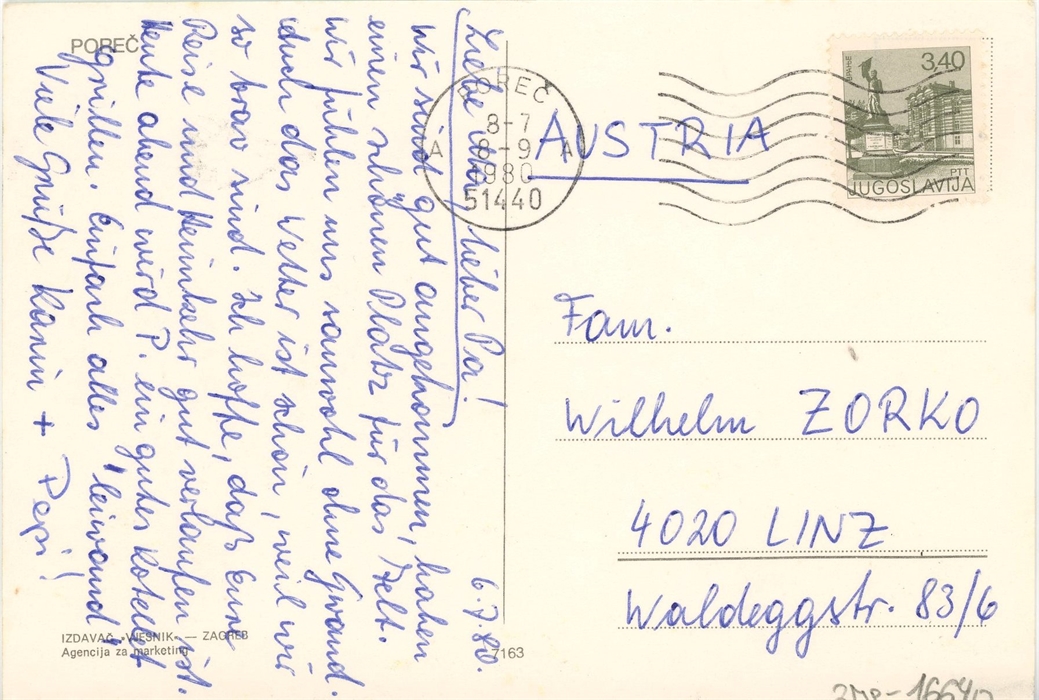 POREČ
Liebe lieber Pa! 6.7.80.
Wir sind gut angekommen, haben
einen schönen Platz für das Zelt.
Wir fühlen uns sauwohl ohne Gwand.
Auch das Wetter ist schön, weil wir
so brav sind. Ich hoffe, daß Eure
Reise und Heimkehr gut verlaufen ist.
Heute abend wird P. ein gutes Kotelett
grillen. Einfach alles „leiwand"!
Viele Grüße Karin + Pepi!
IZDAVAČ »VJESNIK« — ZAGREB
Agencija za marketing
7163
POREČ
8-7
A 8-9 A
1980
51440
3,40
ВРАЊЕ
PTT
JUGOSLAVIJA
AUSTRIA
Fam.
Wilhelm ZORKO
4020 LINZ
Waldeggstr. 83/6